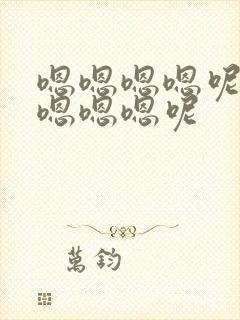 嗯嗯嗯嗯呢
嗯嗯嗯呢
萬鈞